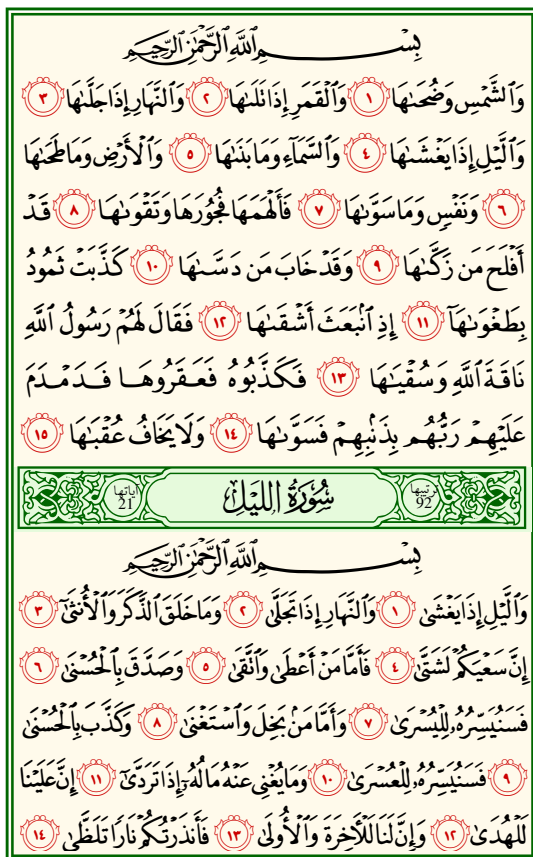 بِسْمِ ٱللَّهِ ٱلرَّحْمَٰنِ ٱلرَّحِيمِ
وَٱلشَّمْسِ وَضُحَىٰهَا ١ وَٱلْقَمَرِ إِذَا تَلَىٰهَا ٢ وَٱلنَّهَارِ إِذَا جَلَّىٰهَا ٣
وَٱلَّيْلِ إِذَا يَغْشَىٰهَا ٤ وَٱلسَّمَآءِ وَمَا بَنَىٰهَا ٥ وَٱلْأَرْضِ وَمَا طَحَىٰهَا
٦ وَنَفْسٍ وَمَا سَوَّىٰهَا ٧ فَأَلْهَمَهَا فُجُورَهَا وَتَقْوَىٰهَا ٨ قَدْ
أَفْلَحَ مَن زَكَّىٰهَا ٩ وَقَدْ خَابَ مَن دَسَّىٰهَا ١٠ كَذَّبَتْ ثَمُودُ
بِطَغْوَىٰهَآ ١١ إِذِ ٱنۢبَعَثَ أَشْقَىٰهَا ١٢ فَقَالَ لَهُمْ رَسُولُ ٱللَّهِ
نَاقَةَ ٱللَّهِ وَسُقْيَٰهَا ١٣ فَكَذَّبُوهُ فَعَقَرُوهَا فَدَمْدَمَ
عَلَيْهِمْ رَبُّهُم بِذَنۢبِهِمْ فَسَوَّىٰهَا ١٤ وَلَا يَخَافُ عُقْبَٰهَا ١٥
ترتيبها 92 سُورَةُ اللَّيْلِ آياتها 21
بِسْمِ ٱللَّهِ ٱلرَّحْمَٰنِ ٱلرَّحِيمِ
وَٱلَّيْلِ إِذَا يَغْشَىٰ ١ وَٱلنَّهَارِ إِذَا تَجَلَّىٰ ٢ وَمَا خَلَقَ ٱلذَّكَرَ وَٱلْأُنثَىٰٓ ٣
إِنَّ سَعْيَكُمْ لَشَتَّىٰ ٤ فَأَمَّا مَنْ أَعْطَىٰ وَٱتَّقَىٰ ٥ وَصَدَّقَ بِٱلْحُسْنَىٰ ٦
فَسَنُيَسِّرُهُۥ لِلْيُسْرَىٰ ٧ وَأَمَّا مَنۢ بَخِلَ وَٱسْتَغْنَىٰ ٨ وَكَذَّبَ بِٱلْحُسْنَىٰ
٩ فَسَنُيَسِّرُهُۥ لِلْعُسْرَىٰ ١٠ وَمَا يُغْنِى عَنْهُ مَالُهُۥٓ إِذَا تَرَدَّىٰٓ ١١ إِنَّ عَلَيْنَا
لَلْهُدَىٰ ١٢ وَإِنَّ لَنَا لَلْـَٔاخِرَةَ وَٱلْأُولَىٰ ١٣ فَأَنذَرْتُكُمْ نَارًا تَلَظَّىٰ ١٤